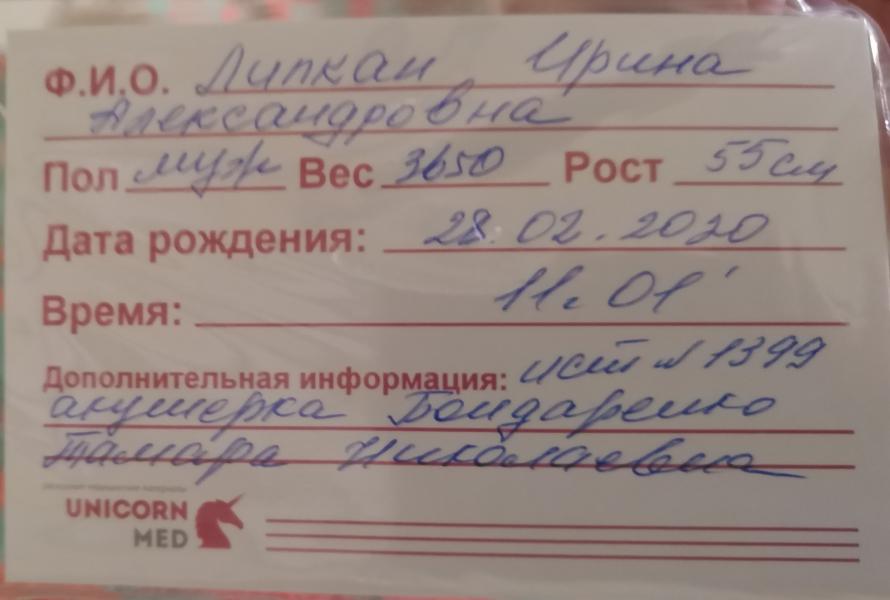 Ф.И.О. Липкан Ирина
Александровна
Пол муж Вес 3650 Рост 55см
Дата рождения: 28.02.2020
Время: 11.01'
Дополнительная информация: ист №1399
акушерка Бондаренко
Тамара Николаевна
UNICORN
MED